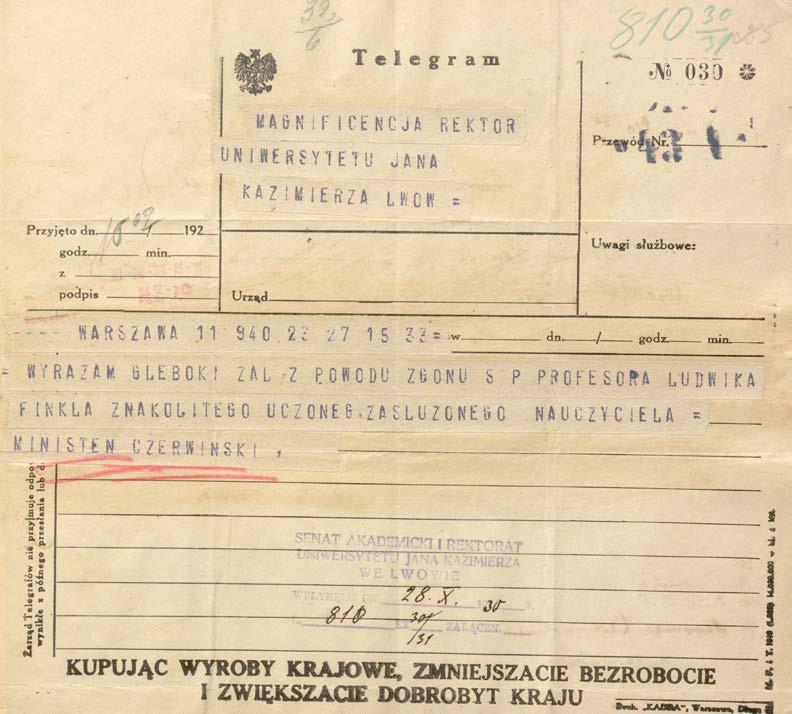 32
6
810 30
31
Telegram
№ 030
MAGNIFICENCJA REKTOR
UNIWERSYTETU JANA
KAZIMIERZA LWOW =
Przewód Nr.
43
Przyjęto dn. 192
godz. min.
z
podpis
Urząd
Uwagi służbowe:
WARSZAWA 11 940 23 27 15 33 = w dn. / godz. min.
= WYRAZAM GLEBOKI ZAL Z POWODU ZGONU S P PROFESORA LUDWIKA
FINKLA ZNAKOLITEGO UCZONEG,ZASLUZONEGO NAUCZYCIELA =
MINISTEN CZERWINSKI ,
Zarząd Telegrafów nie przyjmuje odpo
wynikłe z późnego przesłania lub d
SENAT AKADEMICKI I REKTORAT
UNIWERSYTETU JANA KAZIMIERZA
WE LWOWIE
WPŁYNĘŁO DN. 28. X. 30
810 30/
/31 ZAŁĄCZN.
KUPUJĄC WYROBY KRAJOWE, ZMNIEJSZACIE BEZROBOCIE
I ZWIĘKSZACIE DOBROBYT KRAJU
Druk. „KADRA", Warszawa, Długa